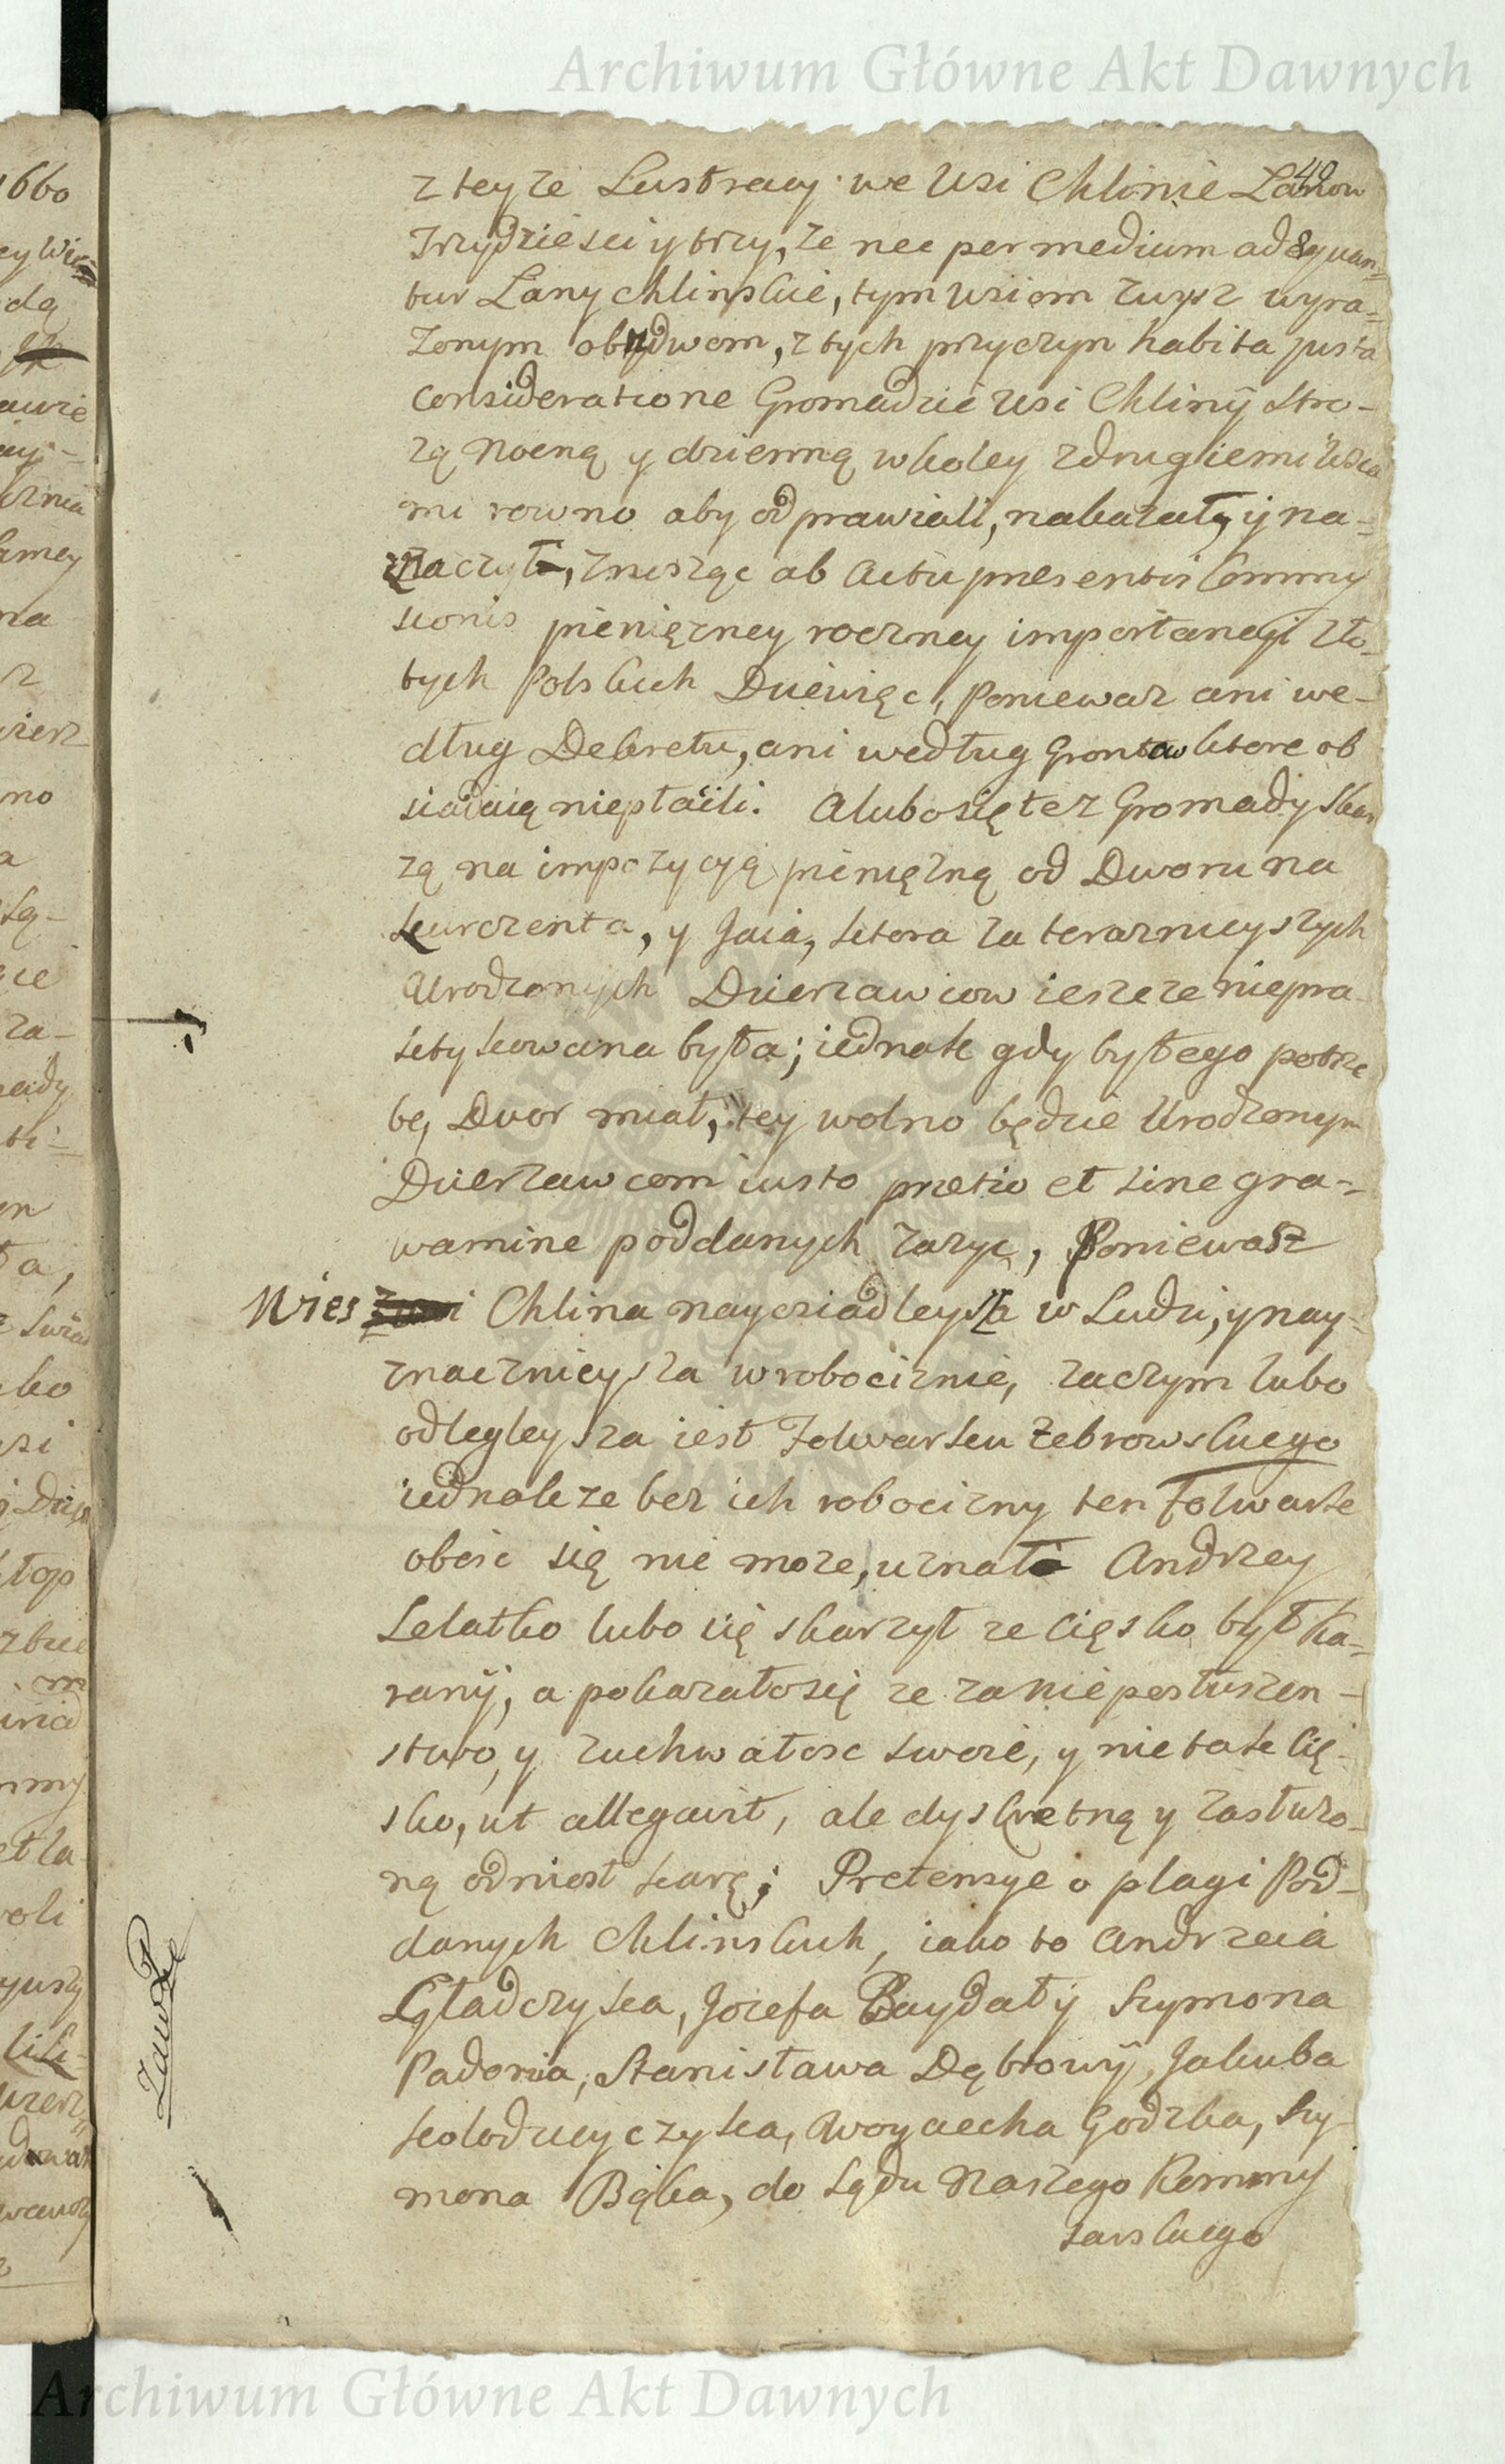 Archiwum Główne Akt Dawnych
40
z teyze Lustracy we Wsi Chlinie Łanow
Trzydziesci y trzy, ze nec per medium adæquan=
tur Łany chlinskie, tym wsiom zwysz wyra=
zonym obydwom, z tych przyczyn habita justa
consideratione Gromadzie Wsi Chliny stro-
zą Nocną y dzienną w koley z drugiemi Wsia
mi rowno aby odprawiali, nakazały, y na=
znaczyli, znosząc ab Actu præsentis Commy
sionis pieniężney roczney importancyi zło-
tych Polskich Dziewięc, Poniewaz ani we-
dług Dekretu, ani według Grontow ktore ob
siadaią niepłacili. A lubo się tez Gromady skar
zą na impozycyą pienięzną od Dworu na
kurczenta, y Jaia, ktora za teraznieyszych
Urodzonych Dzierzawcow ieszcze niepra
ktykowana była; iednak gdy by tego potrze
bę, Dwor miał, tey wolno będzie Urodzonym
Dzierzawcom iusto pretio et sine gra-
wamine poddanych zazyc, Poniewasz
Wies Chlina nayosiadleysza w Ludzi, y nay=
znacznieysza w robociznie, zaczym lubo
odlegleysza iest Folwarku Zebrowskiego
iednak ze bez ich robocizny ten Folwark
obeisc się nie moze, uznała Andrzey
Lelatko lubo się skarzył ze cięsko był ka=
rany, a pokazało się ze za niepostuszen-
stwo, y zuchwałosc swoię, y nie tak cię-
sko, ut allegavit, ale dyskretną y zasłuzo-
ną odniosł karę; Pretensye o plagi Pod-
danych Chlinskich, iako to Andrzeia
Gładczyka, Jozefa Baydały Szymona
Padonia, Stanisława Dąbrowy, Jakuba
Kolodzieyczyka, Woyciecha Godzka, Szy-
mona Bąka, do Sądu Naszego Kommy
sarskiego
Archiwum Główne Akt Dawnych